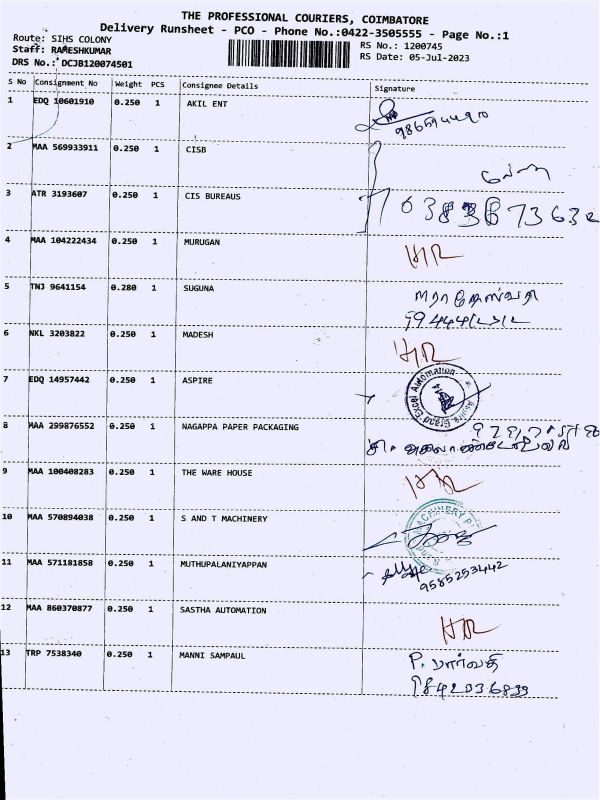 THE PROFESSIONAL COURIERS, COIMBATORE
Delivery Runsheet - PCO - Phone No.:0422-3505555 - Page No.:1
Route: SIHS COLONY
RS No.: 1200745
Staff: RAMESHKUMAR
RS Date: 05-Jul-2023
DRS No.: DCJB120074501
S No Consignment No Weight PCS Consignee Details Signature
1 EDQ 10601910 0.250 1 AKIL ENT
2 MAA 569933911 0.250 1 CISB
3 ATR 3193607 0.250 1 CIS BUREAUS
4 MAA 104222434 0.250 1 MURUGAN HR
5 TNJ 9641154 0.280 1 SUGUNA
6 NKL 3203822 0.250 1 MADESH HR
7 EDQ 14957442 0.250 1 ASPIRE
8 MAA 299876552 0.250 1 NAGAPPA PAPER PACKAGING
9 MAA 100408283 0.250 1 THE WARE HOUSE HR
10 MAA 570894038 0.250 1 S AND T MACHINERY
11 MAA 571181858 0.250 1 MUTHUPALANIYAPPAN
9585253442
12 MAA 860370877 0.250 1 SASTHA AUTOMATION HR
13 TRP 7538340 0.250 1 MANNI SAMPAUL P. பார்வதி
9842036839